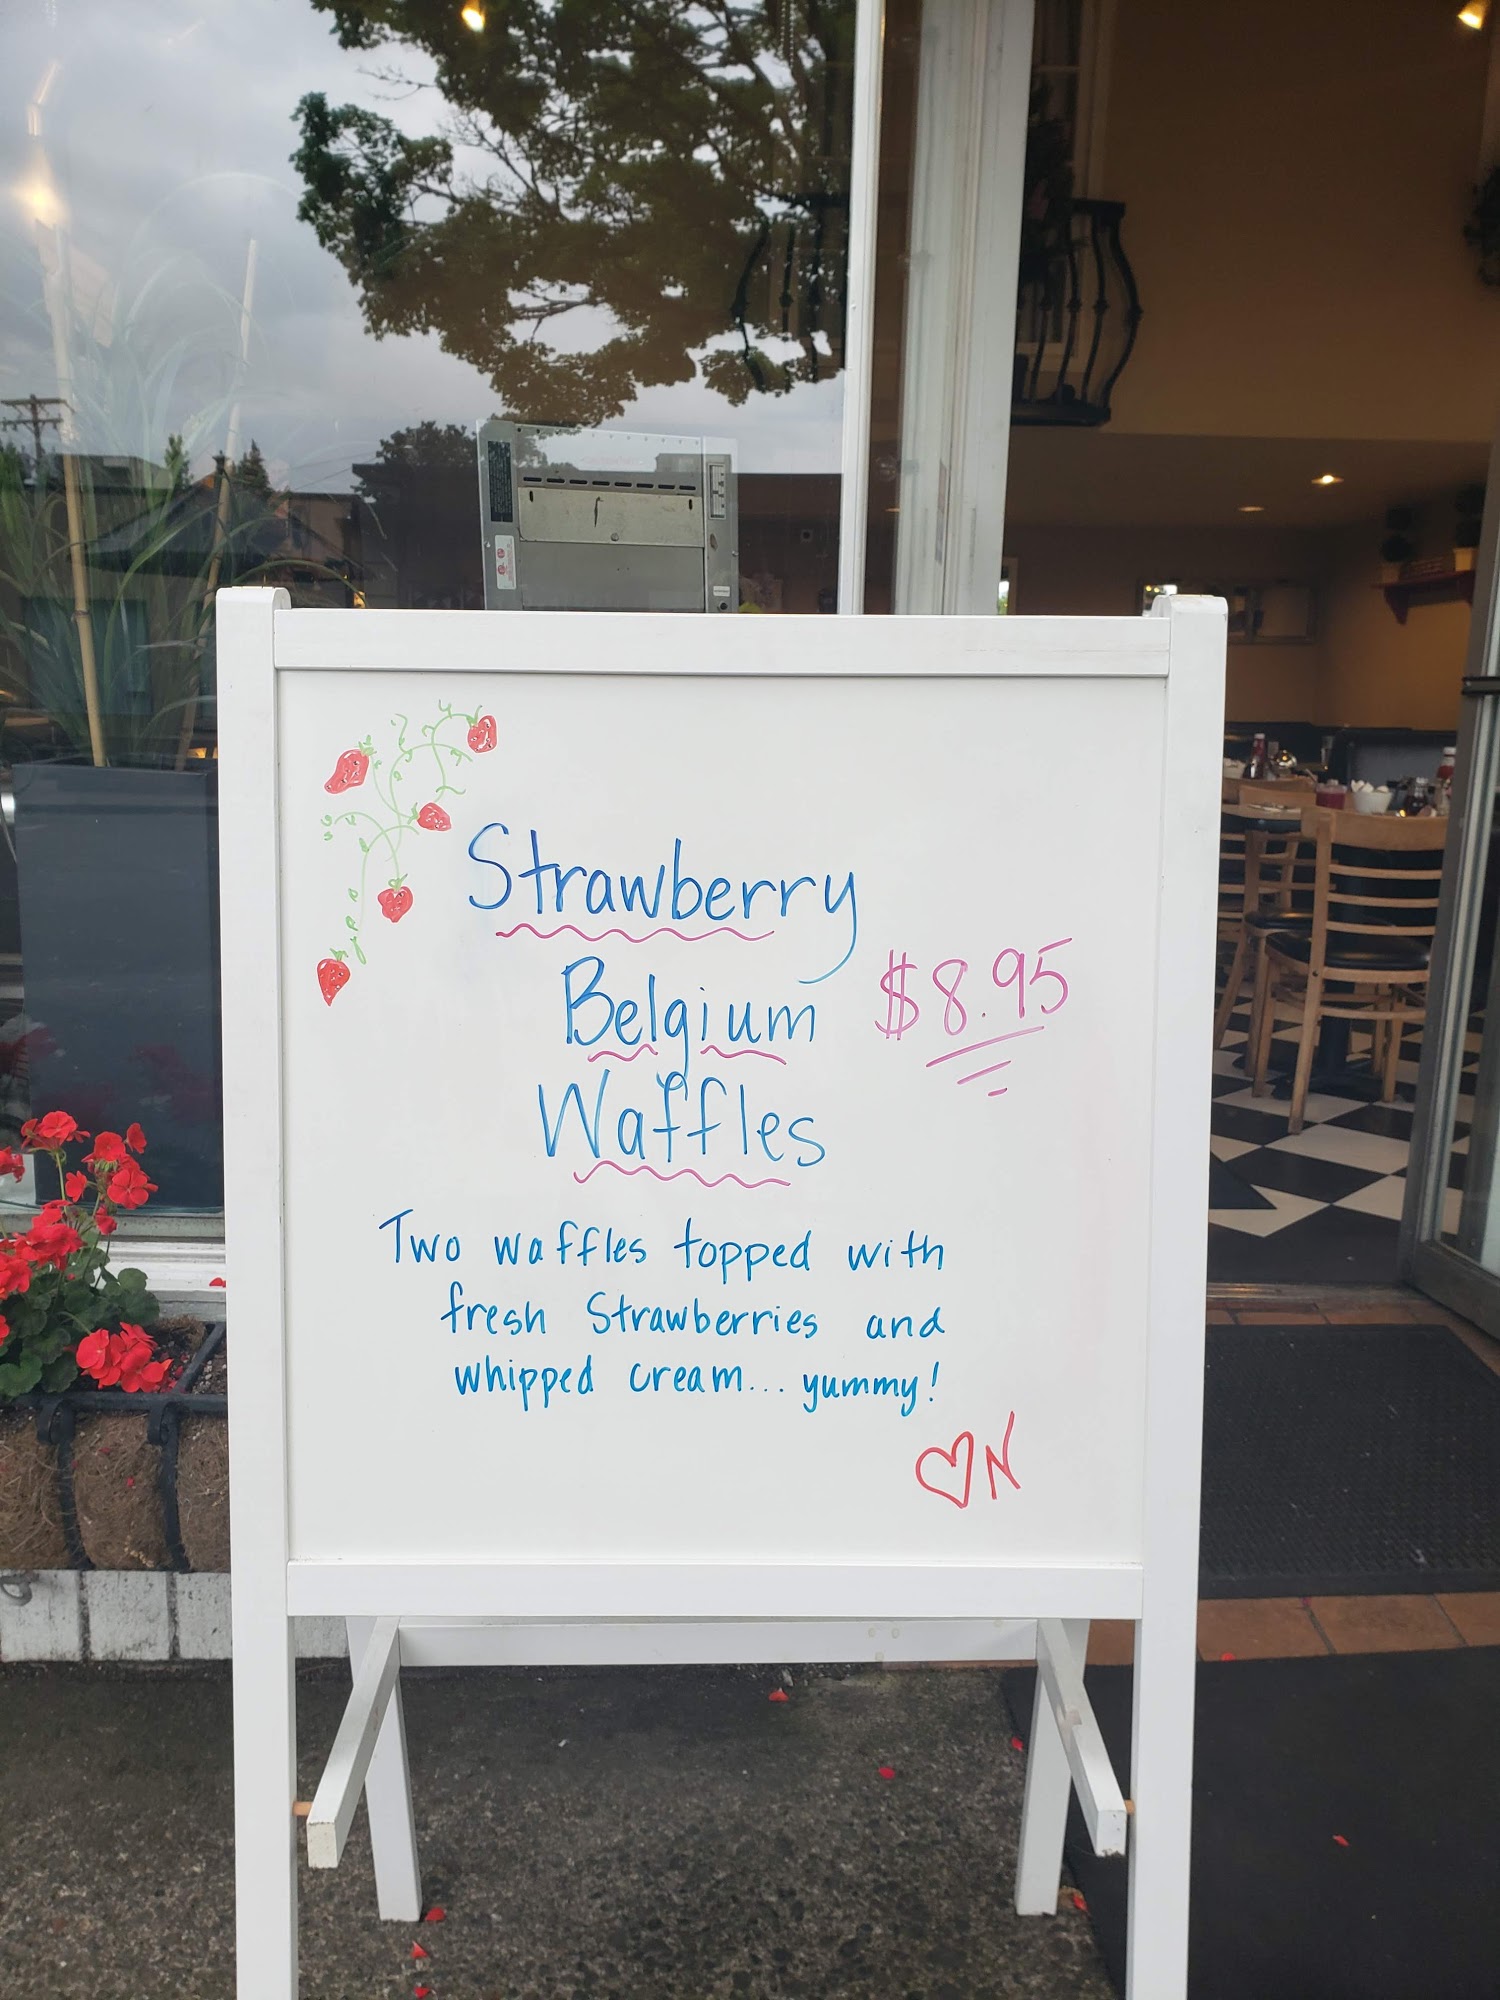 Strawberry
Belgium
$8.95
Waffles
Two waffles topped with
fresh Strawberries and
whipped cream... yummy!
♡N